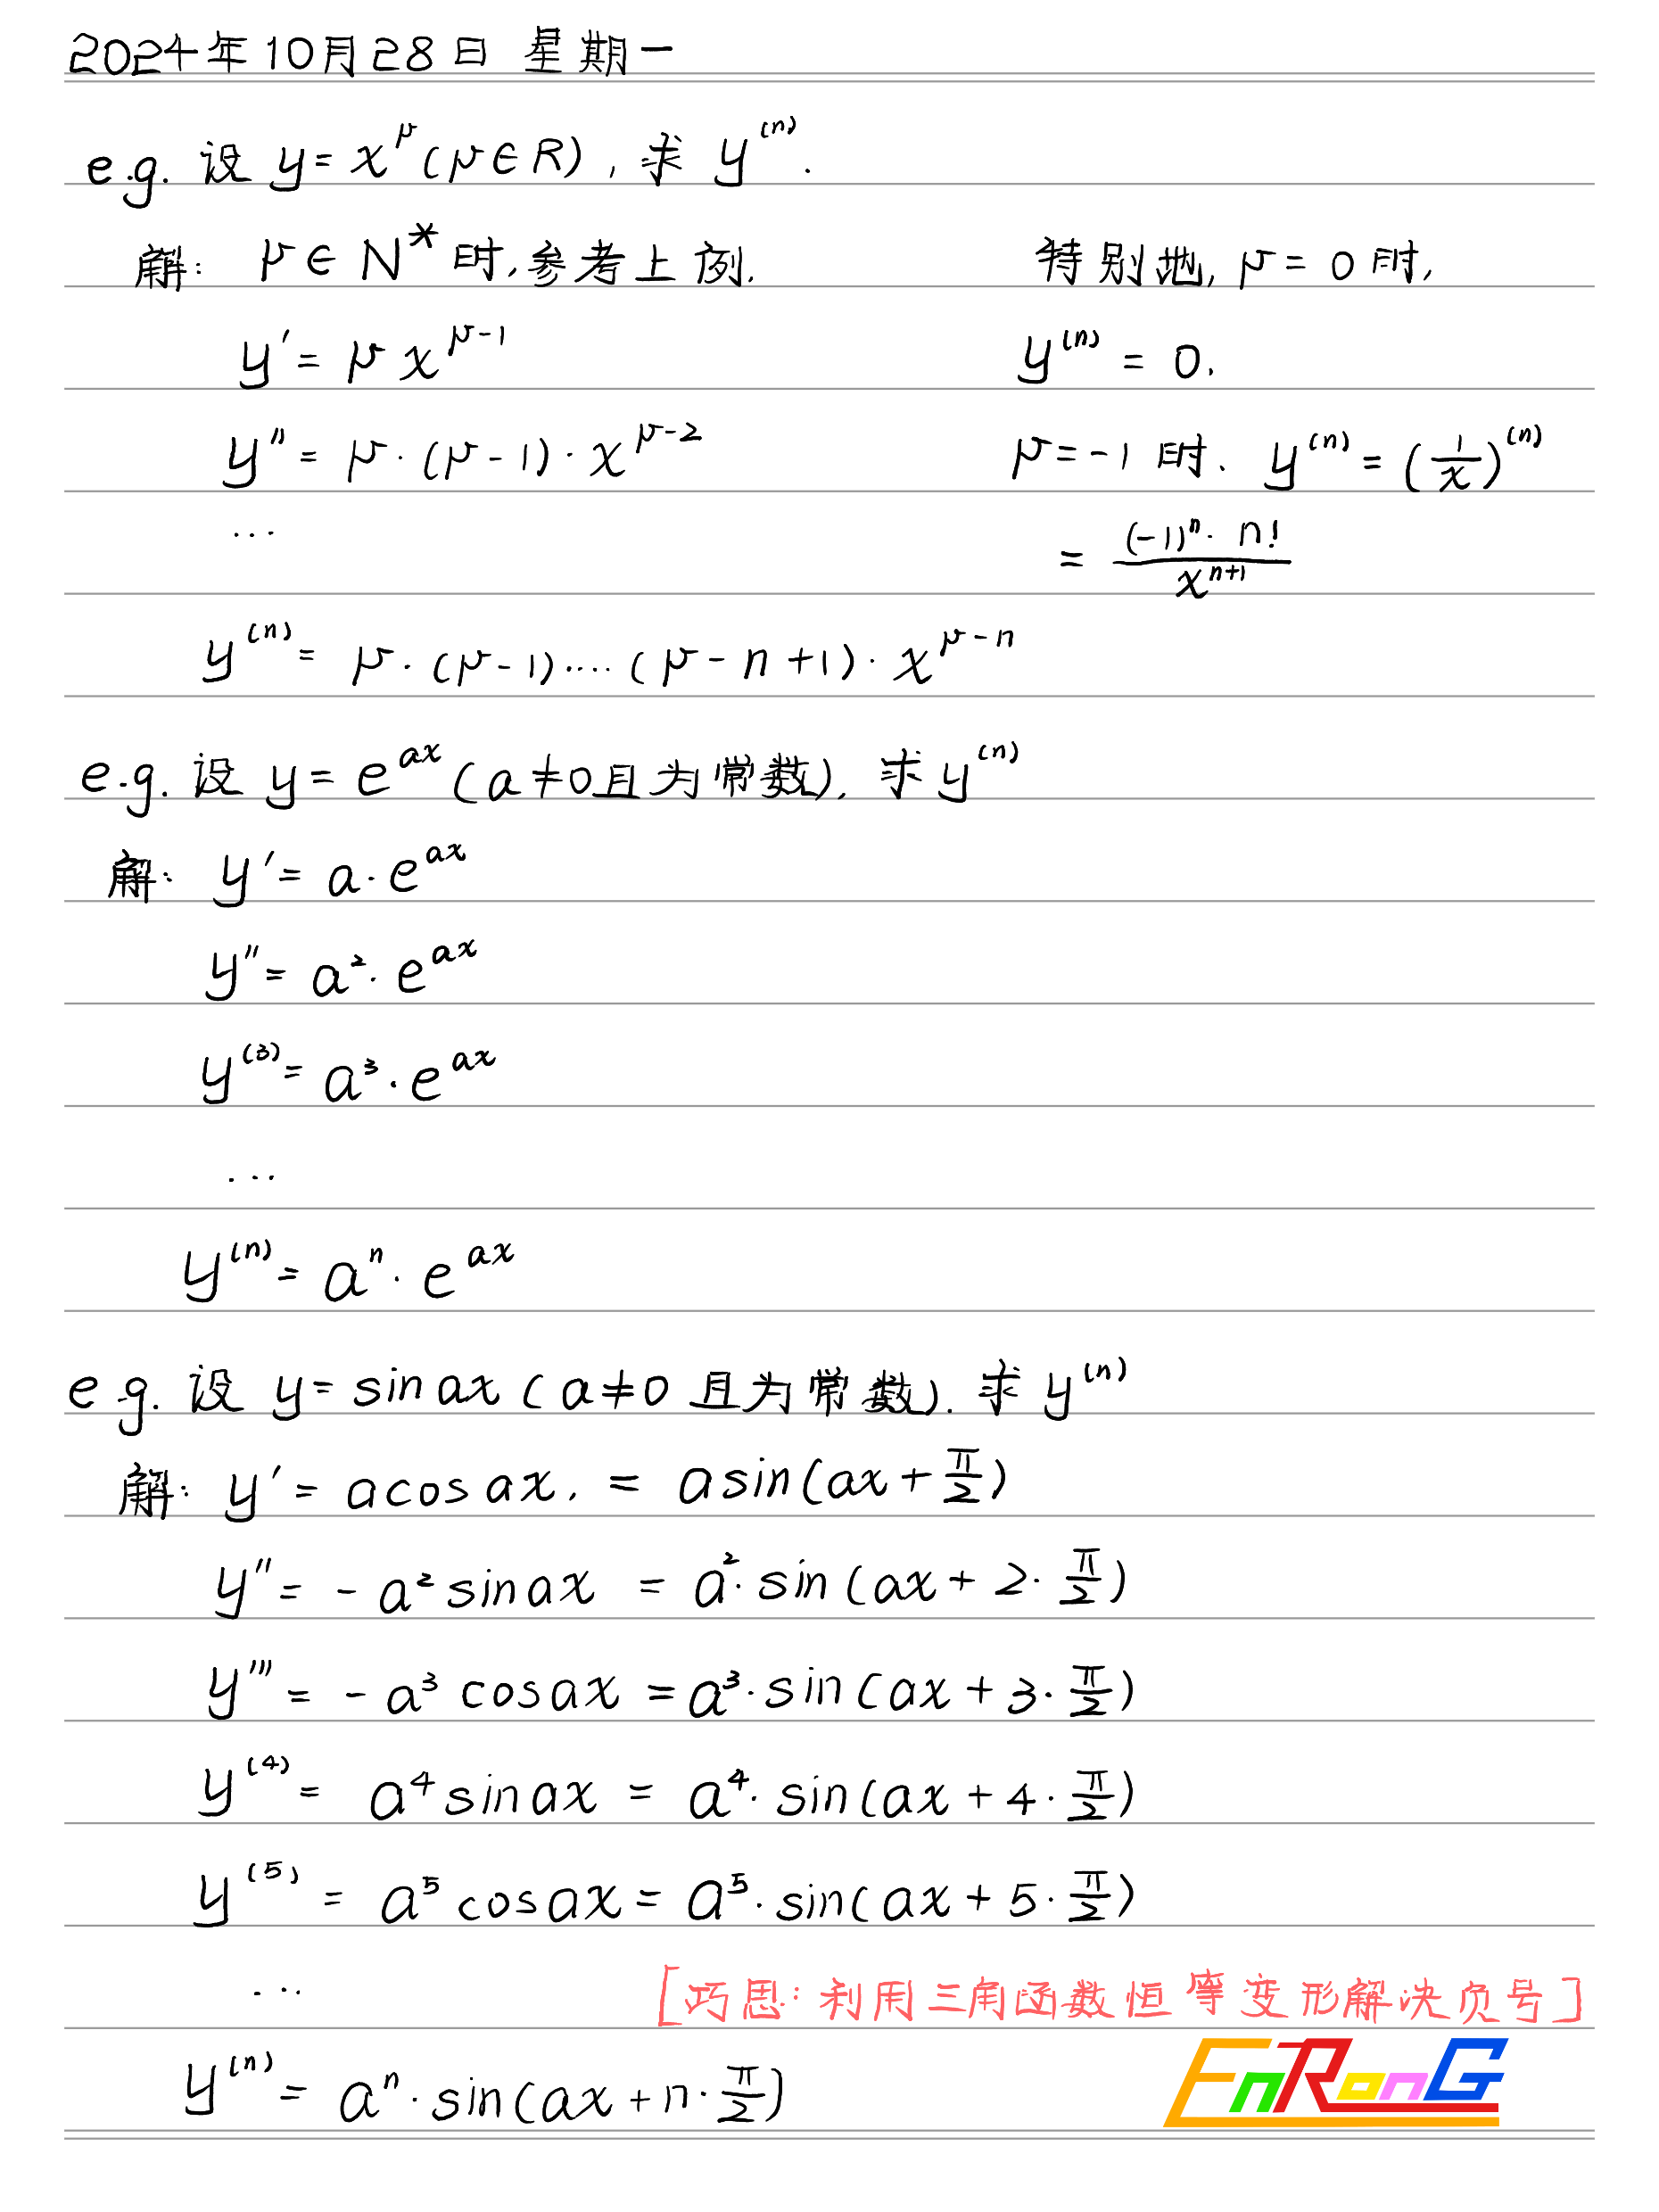 2024年10月28日 星期一
e.g. 设 y = x^μ (μ∈R), 求 y^(n).
解: μ∈N* 时,参考上例. 特别地, μ = 0 时,
y' = μ x^(μ-1) y^(n) = 0.
y'' = μ·(μ-1)·x^(μ-2) μ = -1 时. y^(n) = (1/x)^(n)
... = (-1)^n · n! / x^(n+1)
y^(n) = μ·(μ-1)····(μ-n+1)·x^(μ-n)
e.g. 设 y = e^(ax) (a≠0且为常数), 求 y^(n)
解: y' = a·e^(ax)
y'' = a²·e^(ax)
y^(3) = a³·e^(ax)
...
y^(n) = a^n·e^(ax)
e.g. 设 y = sin ax (a≠0 且为常数). 求 y^(n)
解: y' = a cos ax. = a sin(ax + π/2)
y'' = -a² sin ax = a²·sin(ax + 2·π/2)
y''' = -a³ cos ax = a³·sin(ax + 3·π/2)
y^(4) = a⁴ sin ax = a⁴·sin(ax + 4·π/2)
y^(5) = a⁵ cos ax = a⁵·sin(ax + 5·π/2)
... [巧思: 利用三角函数恒等变形解决负号]
y^(n) = a^n·sin(ax + n·π/2) EnRonG